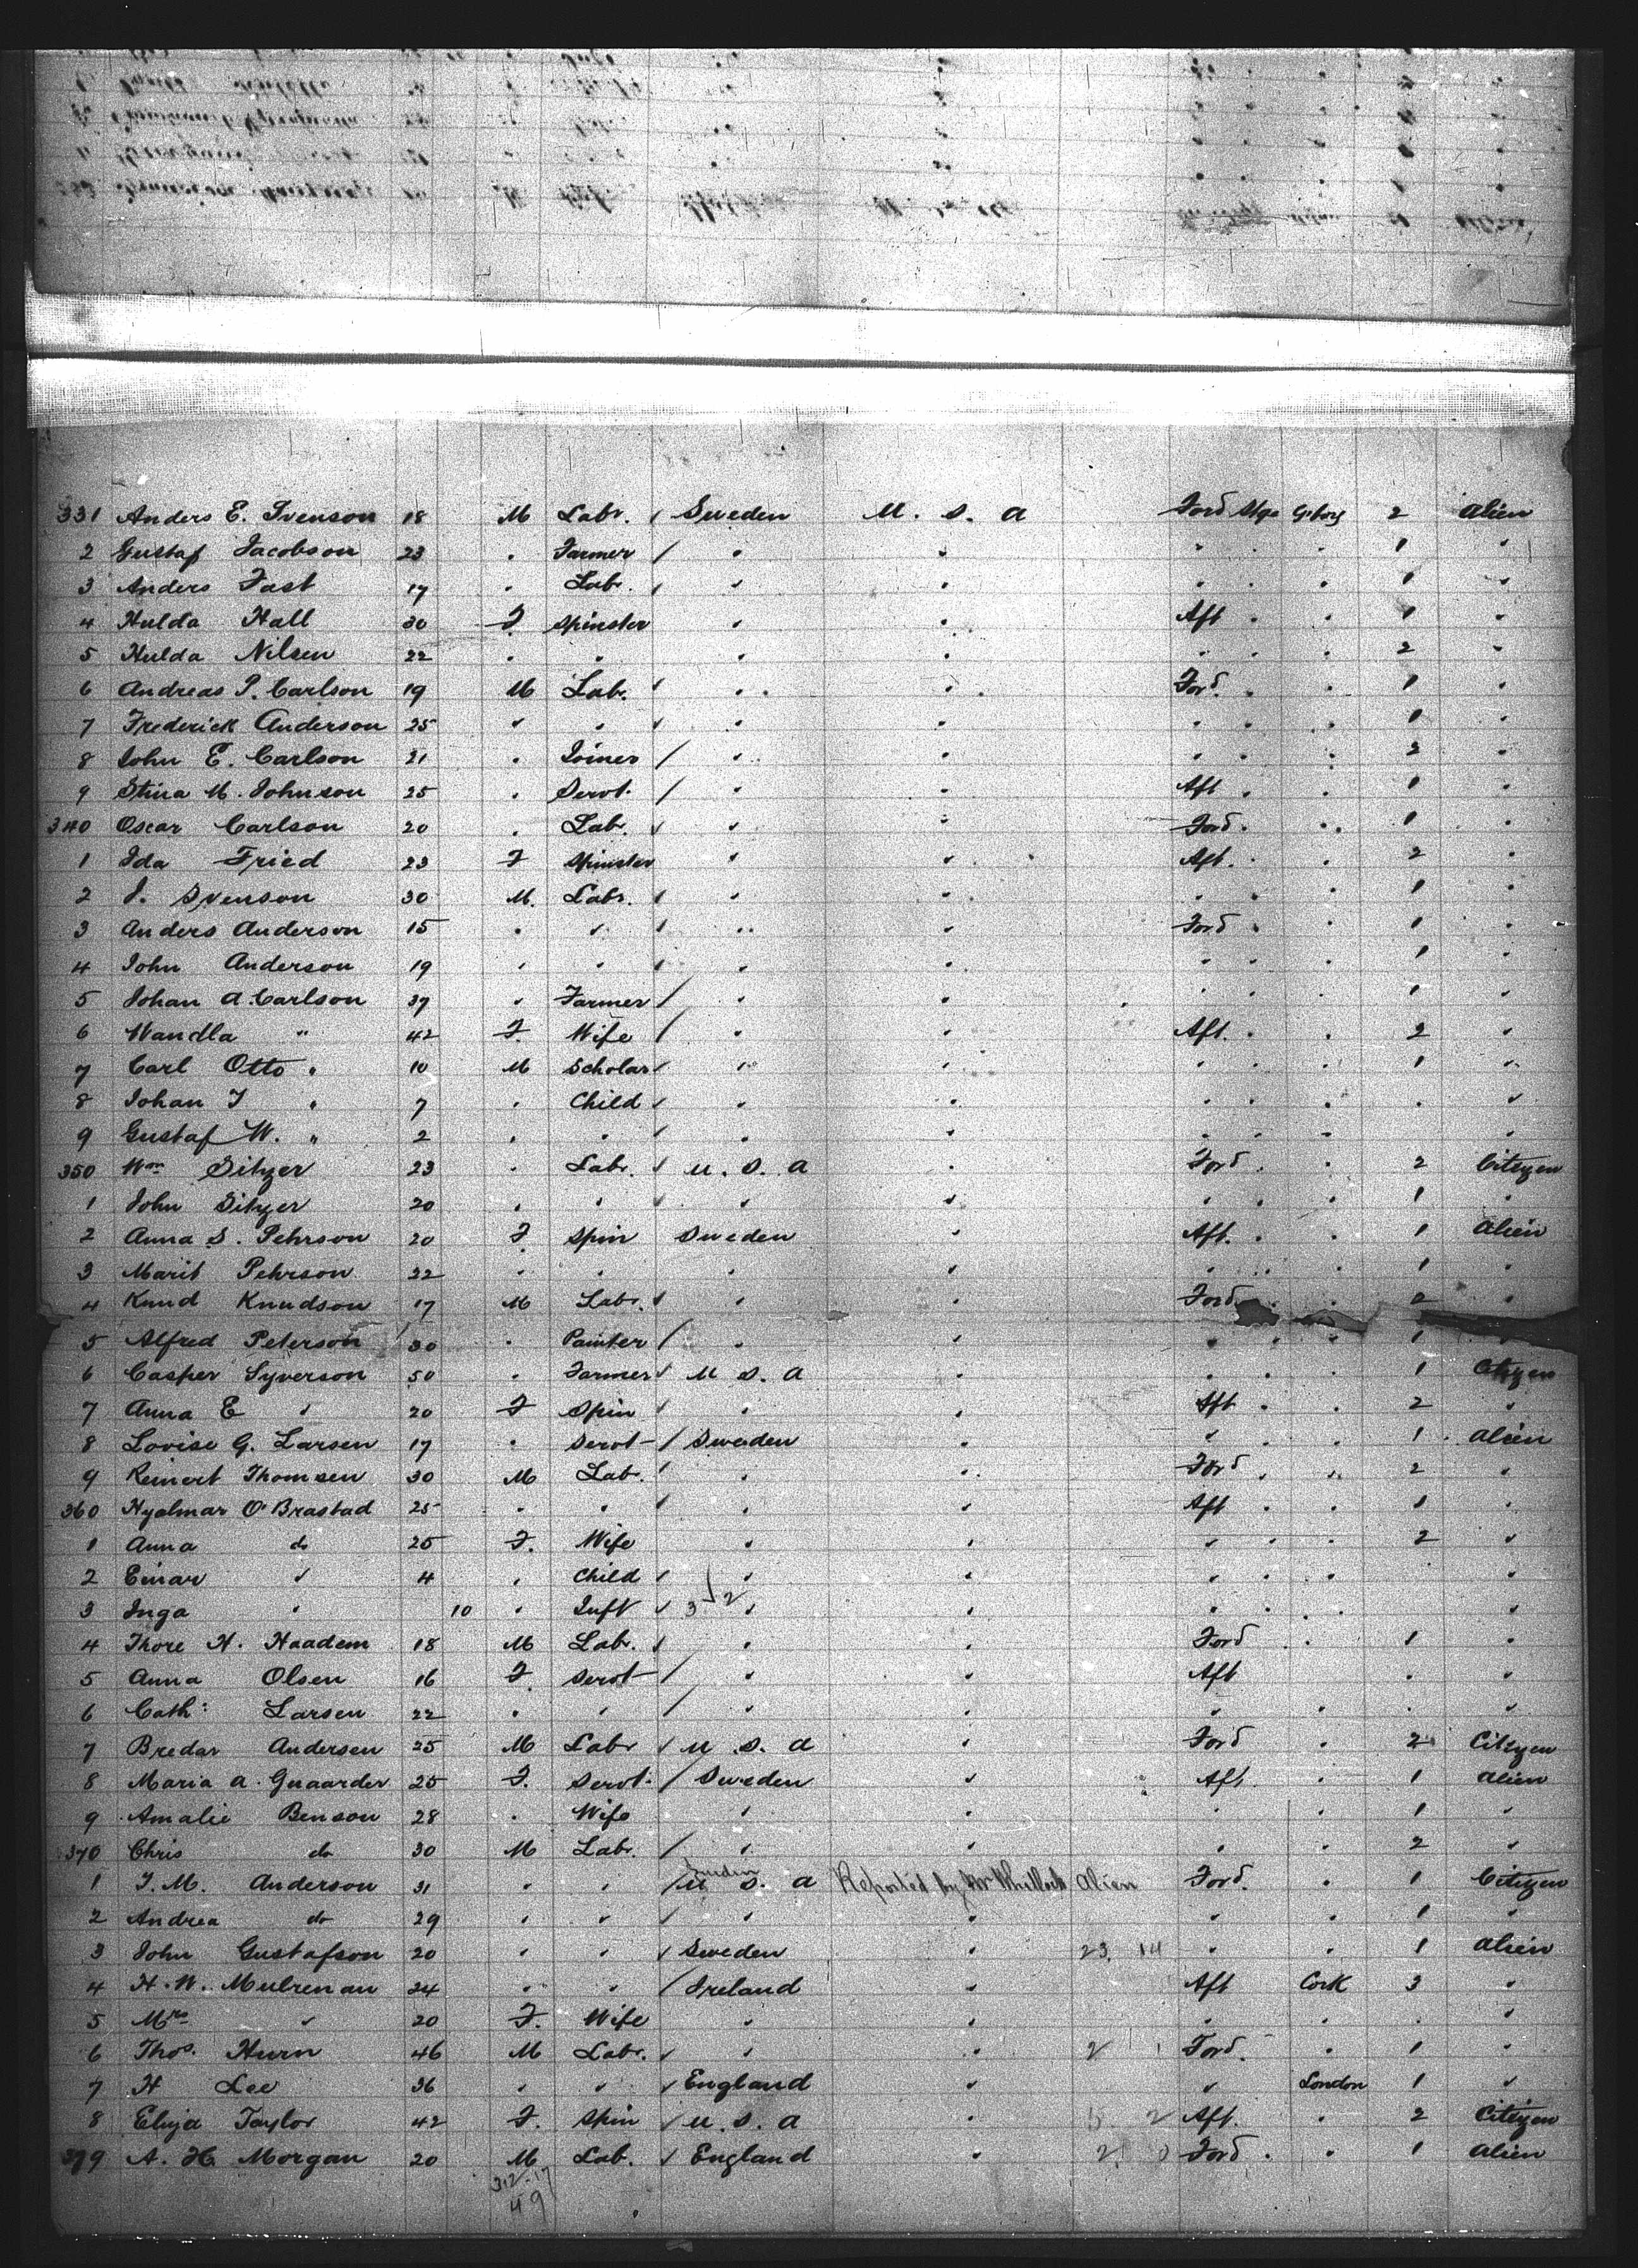 331 Anders E. Svenson 18 M Labr. / Sweden U. S. A Ford Stge G.borg 2 Alien
2 Gustaf Jacobson 23 " Farmer / " " " " " 1 "
3 Anders Fast 17 " Labr. / " " " " " 1 "
4 Hulda Hall 30 F. Spinster " " Aft " " 1 "
5 Hulda Nilsen 22 " " " " " " " 2 "
6 Andreas P. Carlson 19 M Lab. / " " Ford. " " 1 "
7 Frederick Anderson 25 " " / " " " " " 1 "
8 John E. Carlson 21 " Joiner / " " " " " 2 "
9 Stina M. Johnson 25 " Servt. / " " Aft " " 1 "
340 Oscar Carlson 20 " Lab. / " " Ford. " " 1 "
1 Ida Fried 23 F Spinster " " Aft. " " 2 "
2 J. Svenson 30 M. Labr. / " " " " " 1 "
3 Anders Anderson 15 " " / " " Ford " " 1 "
4 John Anderson 19 " " / " " " " " 1 "
5 Johan A. Carlson 37 " Farmer / " " " " " 1 "
6 Wandla " 42 F. Wife / " " Aft. " " 2 "
7 Carl Otto " 10 M Scholar / " " " " " 1 "
8 Johan J " 7 " Child / " " " " " " "
9 Gustaf W. " 2 " " / " " " " " "
350 Wm Sitzer 23 " Labr. / U. S. A " Ford " " 2 Citizen
1 John Sitzer 20 " " / " " " " " 1 "
2 Anna S. Pehrson 20 F. Spin Sweden " Aft. " " 1 Alien
3 Marit Pehrson 22 " " " " " " " 1 "
4 Knud Knudson 17 M Labr. / " " Ford " " 2 "
5 Alfred Peterson 30 " Painter / " " " " " 1 "
6 Casper Syverson 50 " Farmer / U S. A " " " " 1 Citizen
7 Anna E " 20 F Spin / " " Aft " " 2 "
8 Lovise G. Larsen 17 " Servt / Sweden " " " " 1 Alien
9 Reinert Thomsen 30 M Lab. / " " Ford " " 2 "
360 Hyalmar O'Brastad 25 " " / " " Aft " " 1 "
1 Anna do 25 F. Wife " " " " " 2 "
2 Einar " 4 " Child / " " " " " "
3 Inga " 10 " Inft / 3 2 " " " " " "
4 Thore H. Haadem 18 M Lab. / " " Ford " " 1 "
5 Anna Olsen 16 F. Servt / " " Aft " "
6 Cath: Larsen 22 " " / " " " " " " "
7 Bredar Andersen 25 M Labr / U. S. A " Ford " 2 Citizen
8 Maria A. Gnaarder 25 F. Servt. / Sweden " Aft. " 1 Alien
9 Amalie Benson 28 " Wife " " " " 1 "
370 Chris do 30 M Lab. / " " " " 2 "
1 J. M. Anderson 31 " " / Sweden U S. A Reported by Mr Whillock Alien Ford. " 1 Citizen
2 Andrea do 29 " " / " " " " 1 "
3 John Gustafson 20 " " / Sweden " 23 14 " " 1 Alien
4 H. W. Mulrenan 24 " " / Ireland Aft Cork 3 "
5 Mrs " 20 F. Wife " " " " " "
6 Thos. Hurn 46 M Labr. / " " 2 1 Ford. " 1 "
7 H Lee 36 " " / England " " London 1 "
8 Eliza Taylor 42 F. Spin / U. S. A " 2 Aft. " 2 Citizen
379 A. H. Morgan 20 M Lab. / England " 2 0 Ford. " 1 Alien
312-17
49